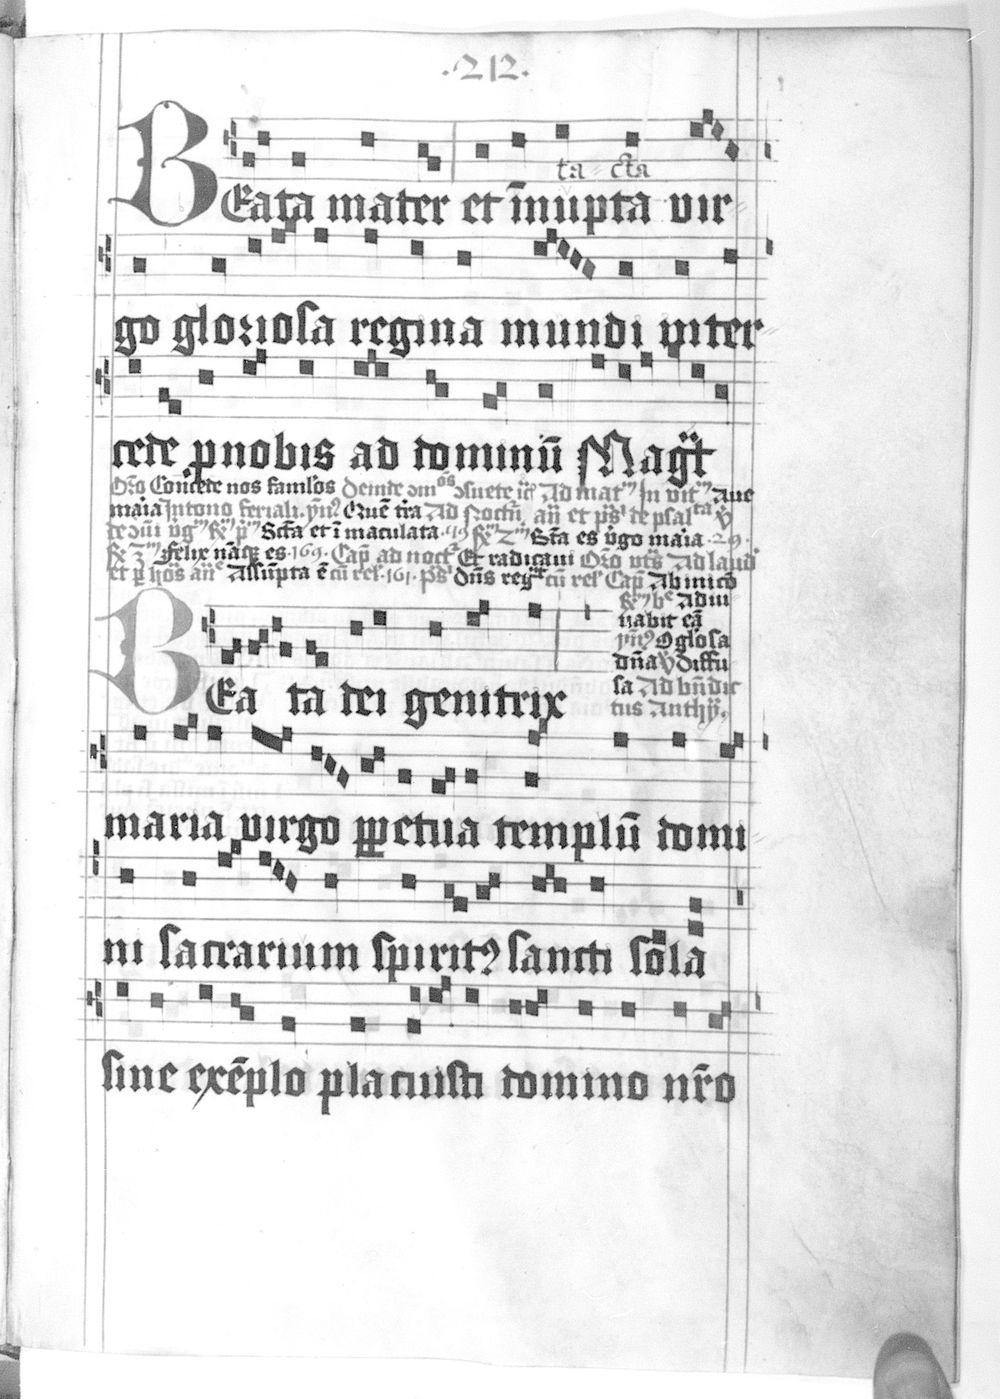 ·212·
ta cta
BEata mater et īnupta vir
go gloriosa regina mundi inter
cede pnobis ad dominū Magt
Oro Concede nos famlos Deinde Ad mat In vit Aue
maria Intono feriali. Quē tra Ad Noctu añ et ps de psal ta
Scta et īmaculata .19 Sta es vgo maria .29.
Felix nāq es .169. Cap ad noct Et radicaui Oro Ad laud
et p hos añ Assūpta ē cū rel .161. ps Dns reg cū rel Cap Ab inicio
Adiu
uabit eā
O glosa
dña Diffu
sa Ad bndic
tus Anth
BEa ta dei genitrix
maria virgo ppetua templū domi
ni sacrarium spirit9 sancti sola
sine exēplo placuisti domino nr̄o